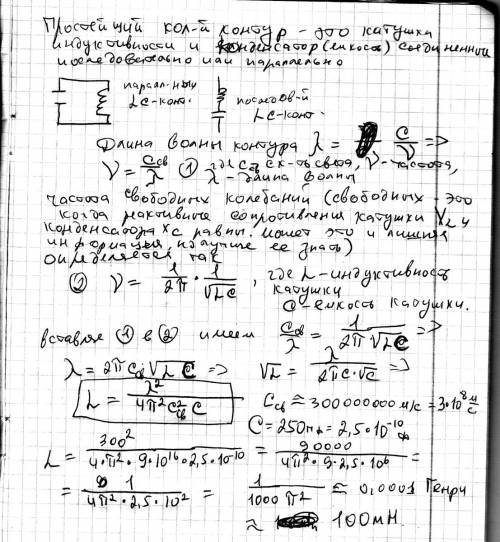 Простейший кол-й контур - это катушка
индуктивности и конденсатор (емкость) соединенной
последовательно или параллельно
паралл-ный
LC-конт.
последов-й
LC-конт.
Длина волны контура λ = C/ν =>
ν = Cсв/λ ① где Cсв ск-ть света, ν - частота,
λ - длина волны
частота свободных колебаний (свободных - это
когда реактивные сопротивления катушки XL и
конденсатора Xc равны. Может это и лишняя
информация, но лучше ее знать)
определяется так
② ν = 1/2π · 1/√LC, где L - индуктивность
катушки
C - емкость катушки.
вставляя ① в ② имеем Cсв/λ = 1/2π√LC =>
λ = 2πCсв√LC => √L = λ/2πC·√C =>
L = λ²/4π²Cсв²C
Cсв ≈ 300000000 м/с = 3·10⁸ м/с
C = 250пф = 2,5·10⁻¹⁰ ф
L = 300²/4·π²·9·10¹⁶·2,5·10⁻¹⁰ = 90000/4π²·9·2,5·10⁶ =
= 1/4π²·2,5·10² = 1/1000π² ≈ 0,0001 Генри
≈ 100мН.